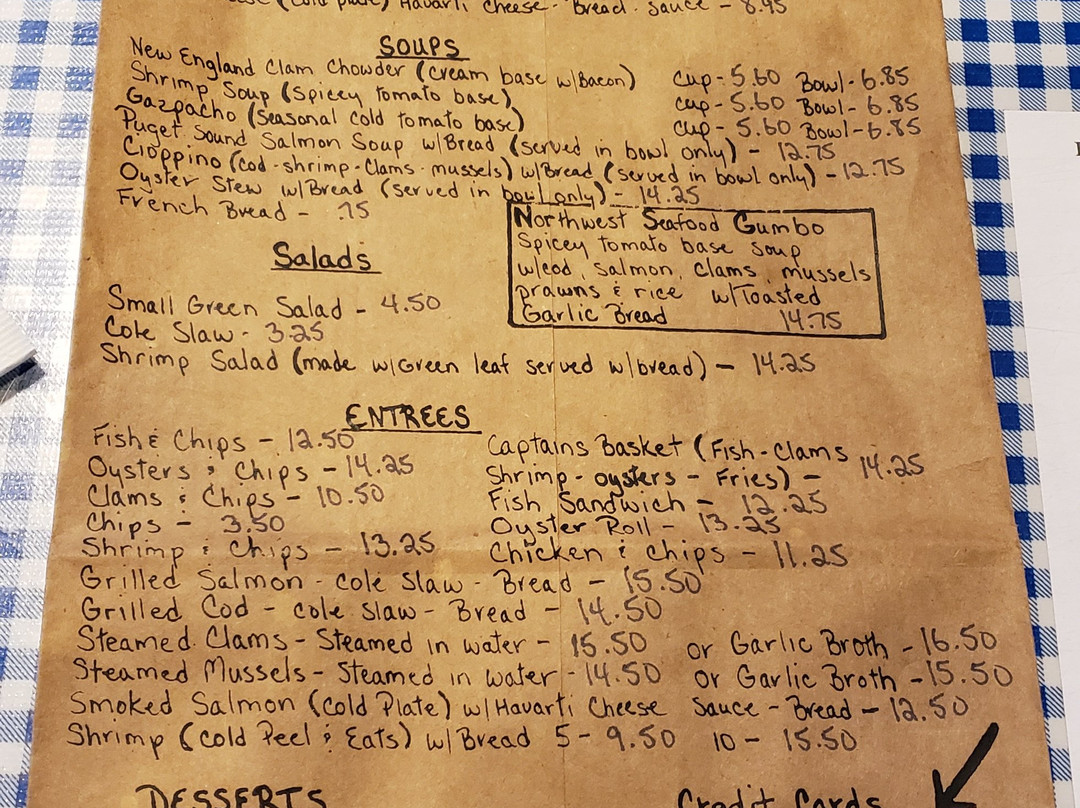 (cold plate) Havarti Cheese - Bread - Sauce - 8.95
SOUPS
New England Clam Chowder (cream base w/Bacon) Cup - 5.60 Bowl - 6.85
Shrimp Soup (Spicey tomato base) Cup - 5.60 Bowl - 6.85
Gazpacho (seasonal cold tomato base) Cup - 5.60 Bowl - 6.85
Puget Sound Salmon Soup w/Bread (served in bowl only) - 12.75
Cioppino (cod - shrimp - Clams - mussels) w/Bread (served in bowl only) - 12.75
Oyster Stew w/Bread (served in bowl only) - 14.25
French Bread - .75
Northwest Seafood Gumbo
Spicey tomato base soup
w/cod, salmon, clams, mussels
prawns & rice w/Toasted
Garlic Bread 14.75
Salads
Small Green Salad - 4.50
Cole Slaw - 3.25
Shrimp Salad (made w/Green leaf served w/bread) - 14.25
ENTREES
Fish & Chips - 12.50
Oysters & Chips - 14.25
Clams & Chips - 10.50
Chips - 3.50
Shrimp & Chips - 13.25
Captains Basket (Fish - Clams
Shrimp - oysters - Fries) - 14.25
Fish Sandwich - 12.25
Oyster Roll - 13.25
Chicken & Chips - 11.25
Grilled Salmon - cole Slaw - Bread - 15.50
Grilled Cod - cole slaw - Bread - 14.50
Steamed Clams - Steamed in water - 15.50 or Garlic Broth - 16.50
Steamed Mussels - Steamed in water - 14.50 or Garlic Broth - 15.50
Smoked Salmon (cold Plate) w/Havarti Cheese Sauce - Bread - 12.50
Shrimp (cold Peel & Eats) w/Bread 5 - 9.50 10 - 15.50
DESSERTS
Credit Cards